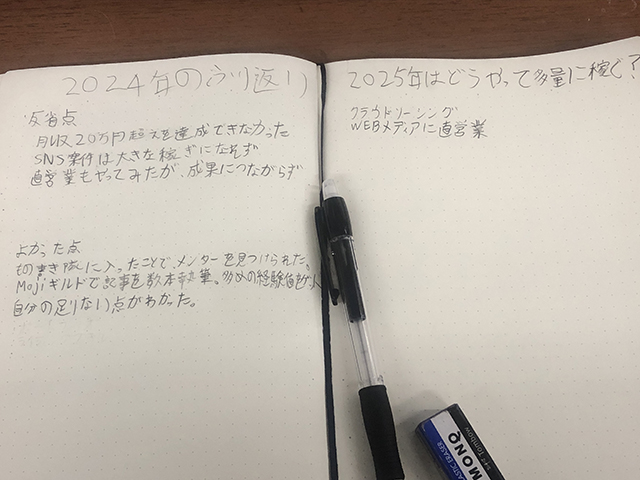 2024年のふり返り
反省点
月収20万円超えを達成できなかった
SNS案件は大きな稼ぎになれず
直営業もやってみたが、成果につながらず
よかった点
もの書き隊に入ったことで、メンターを見つけられた、
Mojiギルドで記事を数本執筆。多めの経験値をゲット
自分の足りない点がわかった。
2025年はどうやって多量に稼ぐ?
クラウドソーシング
WEBメディアに直営業
PLASTIC ERASER
MONO
Tombow